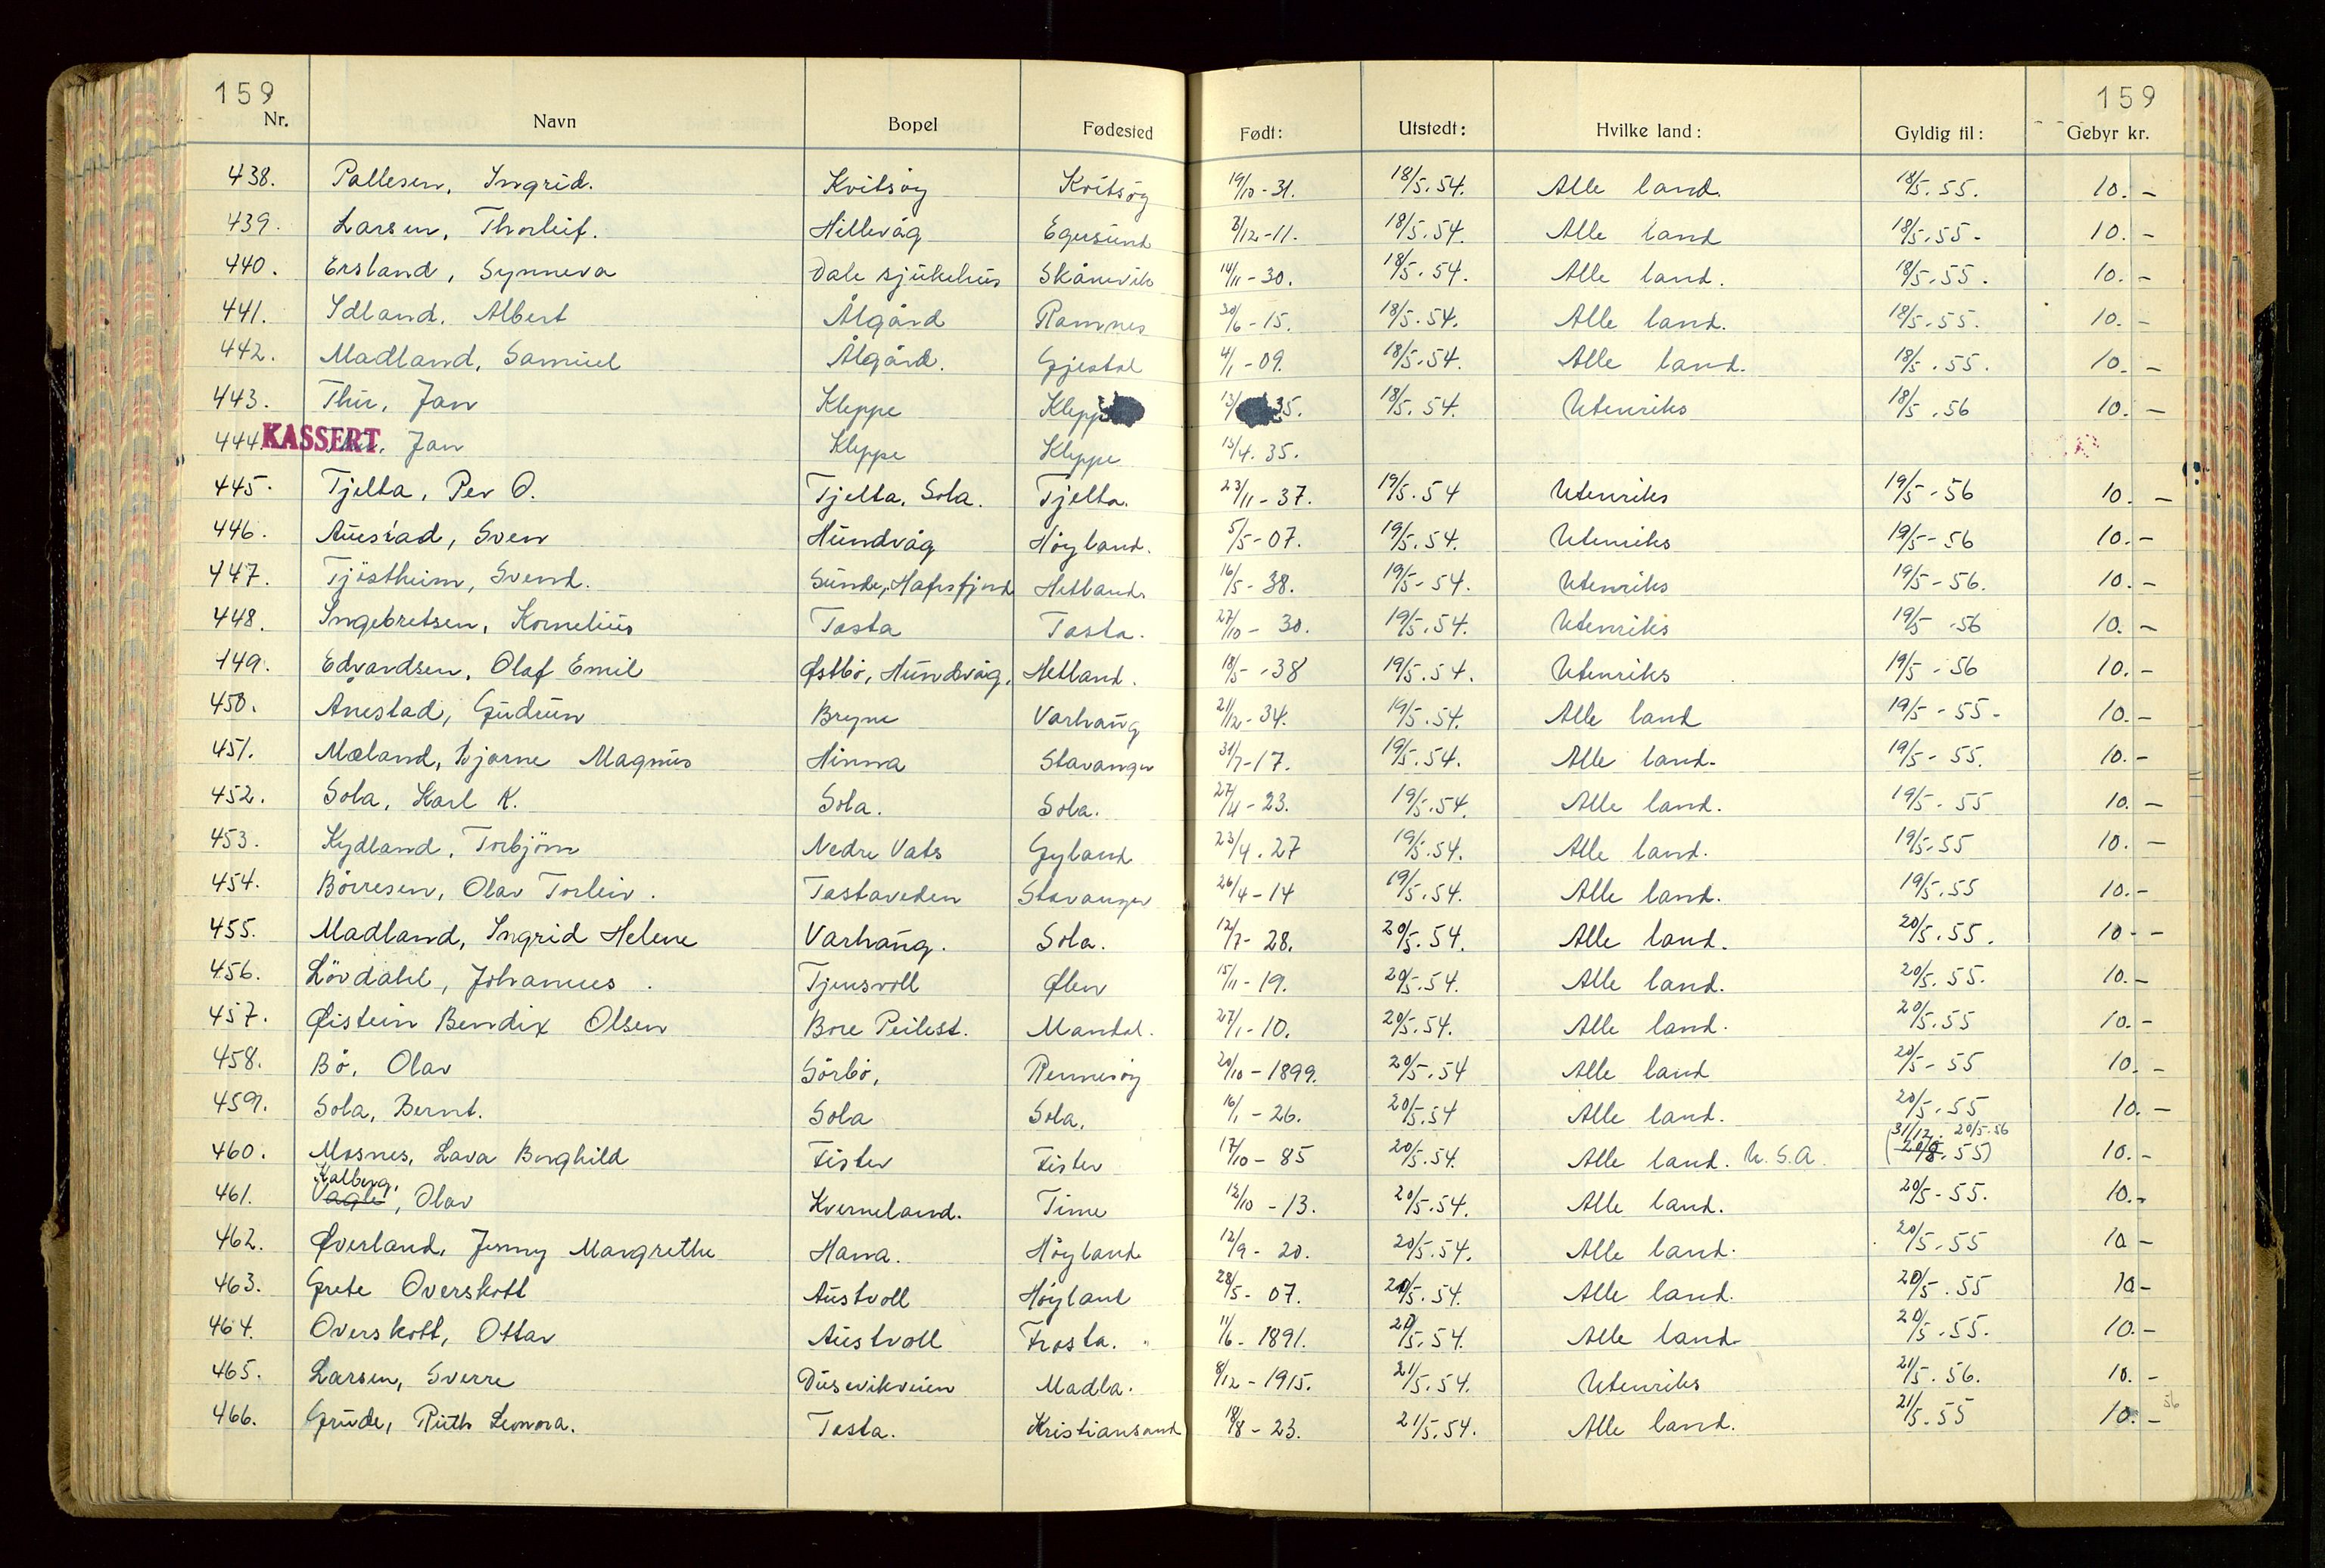 159 159
Nr. Navn Bopel Fødested Født: Utstedt: Hvilke land: Gyldig til: Gebyr kr.
438. Pallesen, Ingrid. Kvitsöy Kvitsöy 19/10-31. 18/5.54. Alle land. 18/5.55. 10.-
439. Larsen, Thorleif. Hillevåg Egersund 8/12-11. 18/5.54. Alle land 18/5.55- 10.-
440. Ersland, Synneva Dale sjukehus Skånevik 14/11-30. 18/5.54. Alle land. 18/5.55. 10.-
441. Idland, Albert Ålgård Ramnes 30/6-15. 18/5.54. Alle land. 18/5.55. 10.-
442. Madland, Samuel Ålgård. Gjestal 4/1-09. 18/5.54. Alle land. 18/5.55. 10.-
443. Thu, Jan Kleppe Klepp 13/ 35. 18/5.54. Utenriks 18/5.56 10.-
444. KASSERT Jan Kleppe Kleppe 13/4.35.
445. Tjelta, Per O. Tjelta, Sola. Tjelta. 23/11-37. 19/5.54 Utenriks 19/5-56 10.-
446. Auestad, Sven Hundvåg Höyland. 5/5-07. 19/5.54. Utenriks 19/5-56 10.-
447. Tjöstheim, Svend. Sunde, Hafrsfjord Hetland 16/5-38. 19/5-54. Utenriks 19/5-56. 10.-
448. Ingebretsen, Kornelius Tasta Tasta. 27/10-30. 19/5.54. Utenriks 19/5-56 10.-
449. Edvardsen, Olaf Emil Østbö, Hundvåg, Hetland. 18/5-38 19/5.54. Utenriks 19/5-56 10.-
450. Anestad, Gudrun Bryne Varhaug 21/12-34. 19/5.54. Alle land 19/5-55- 10.-
451. Mæland, Bjarne Magnus Hinna Stavanger 31/7-17. 19/5.54. Alle land. 19/5-55. 10.-
452. Sola, Karl K. Sola. Sola. 27/4-23. 19/5.54. Alle land. 19/5-55 10.-
453. Kydland, Torbjörn Nedre Vats Gyland 23/4.27 19/5.54. Alle land. 19/5.55 10.-
454. Börresen, Olav Torleiv. Tastaveden Stavanger 26/4-14 19/5.54. Alle land. 19/5.55 10.-
455. Madland, Ingrid Helene Varhaug. Sola. 12/7-28. 20/5.54. Alle land. 20/5.55. 10.-
456. Lövdahl, Johannes. Tjensvoll Ølen 15/11-19. 20/5.54. Alle land. 20/5.55. 10.-
457. Øistein Bendix Olsen Bore Peilest. Mandal. 27/1-10. 20/5.54. Alle land. 20/5.55 10.-
458. Bö, Olav Sörbö, Rennesöy 20/10-1899. 20/5.54 Alle land 20/5-55 10.-
459. Sola, Bernt. Sola Sola. 16/1-26. 20/5.54 Alle land. 20/5.55 10.-
31/12. 20/5-56
460. Mosnes, Lava Borghild Fister Fister 17/10-85 20/5.54. Alle land. U.S.A. (20/5.55) 10.-
Kalberg,
461. Vagle, Olav Kverneland. Time 12/10-13. 20/5.54. Alle land. 20/5-55. 10.-
462. Øverland, Jenny Margrethe Hana. Höyland 12/9-20. 20/5.54. Alle land. 20/5.55 10-
463. Grete Overskott Austvoll Höyland 28/5-07. 20/5.54. Alle land. 20/5.55 10-
464. Overskott, Ottar Austvoll Frosta. 11/6-1891. 20/5.54. Alle land 20/5.55. 10.-
465. Larsen, Sverre Dusevikveien Madla. 8/12-1915. 21/5.54. Utenriks 21/5.56. 10.-
466. Grude, Ruth Leonora. Tasta. Kristiansand 18/8-23. 21/5.54. Alle land. 21/5.55 10.- 56